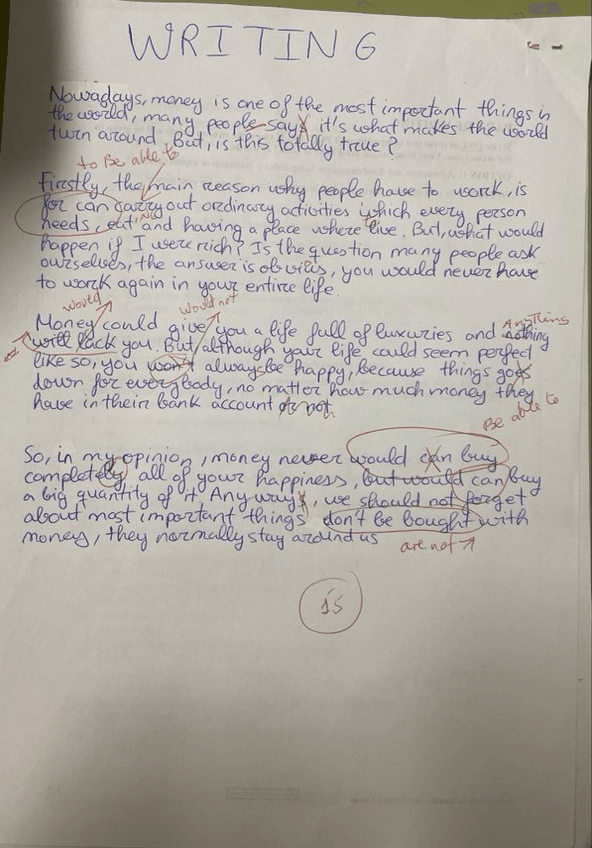 WRITING
Nowadays, money is one of the most important things in
the world, many people says it's what makes the world
turn around. But, is this totally true?
to Be able to
Firstly, the main reason why people have to work, is
for can carry out ordinary activities which every person
needs, eat and having a place where live. But, what would
ing
to
happen if I were rich? Is the question many people ask
ourselves, the answer is obvius, you would never have
to work again in your entire life.
would
would not
Anything
Money could give you a life full of luxuries and nothing
will lack you. But, although your life could seem perfect
like so, you won't always be happy, because things goes
down for everybody, no matter how much money they
have in their bank account or not.
Be able to
So, in my opinion, money never would can buy
completely all of your happiness, but would can buy
a big quantity of it. Any ways, we should not forget
about most important things don't be bought with
money, they normally stay around us
are not
15